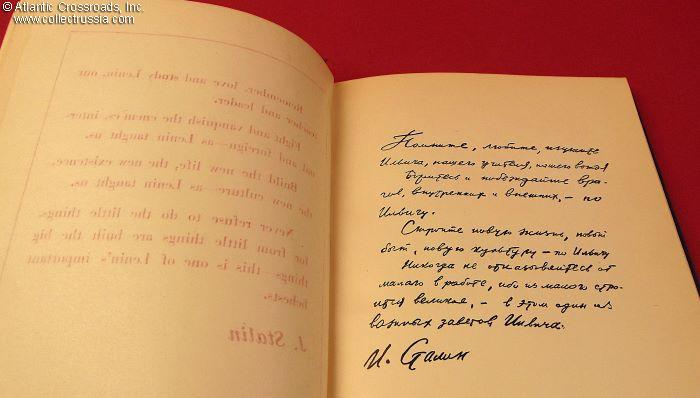 © Atlantic Crossroads, Inc.
www.collectrussia.com
Remember, love and study Lenin, our
teacher and leader.
Fight and vanquish the enemies, inter-
nal and foreign—as Lenin taught us.
Build the new life, the new existence,
the new culture—as Lenin taught us.
Never refuse to do the little things,
for from little things are built the big
things—this is one of Lenin's important
behests.
J. Stalin
Помните, любите, изучайте
Ильича, нашего учителя, нашего вождя
Боритесь и побеждайте вра-
гов, внутренних и внешних, – по
Ильичу.
Стройте новую жизнь, новый
быт, новую культуру – по Ильичу
Никогда не отказывайтесь от
малого в работе, ибо из малого стро-
ится великое, – в этом один из
важных заветов Ильича.
И. Сталин